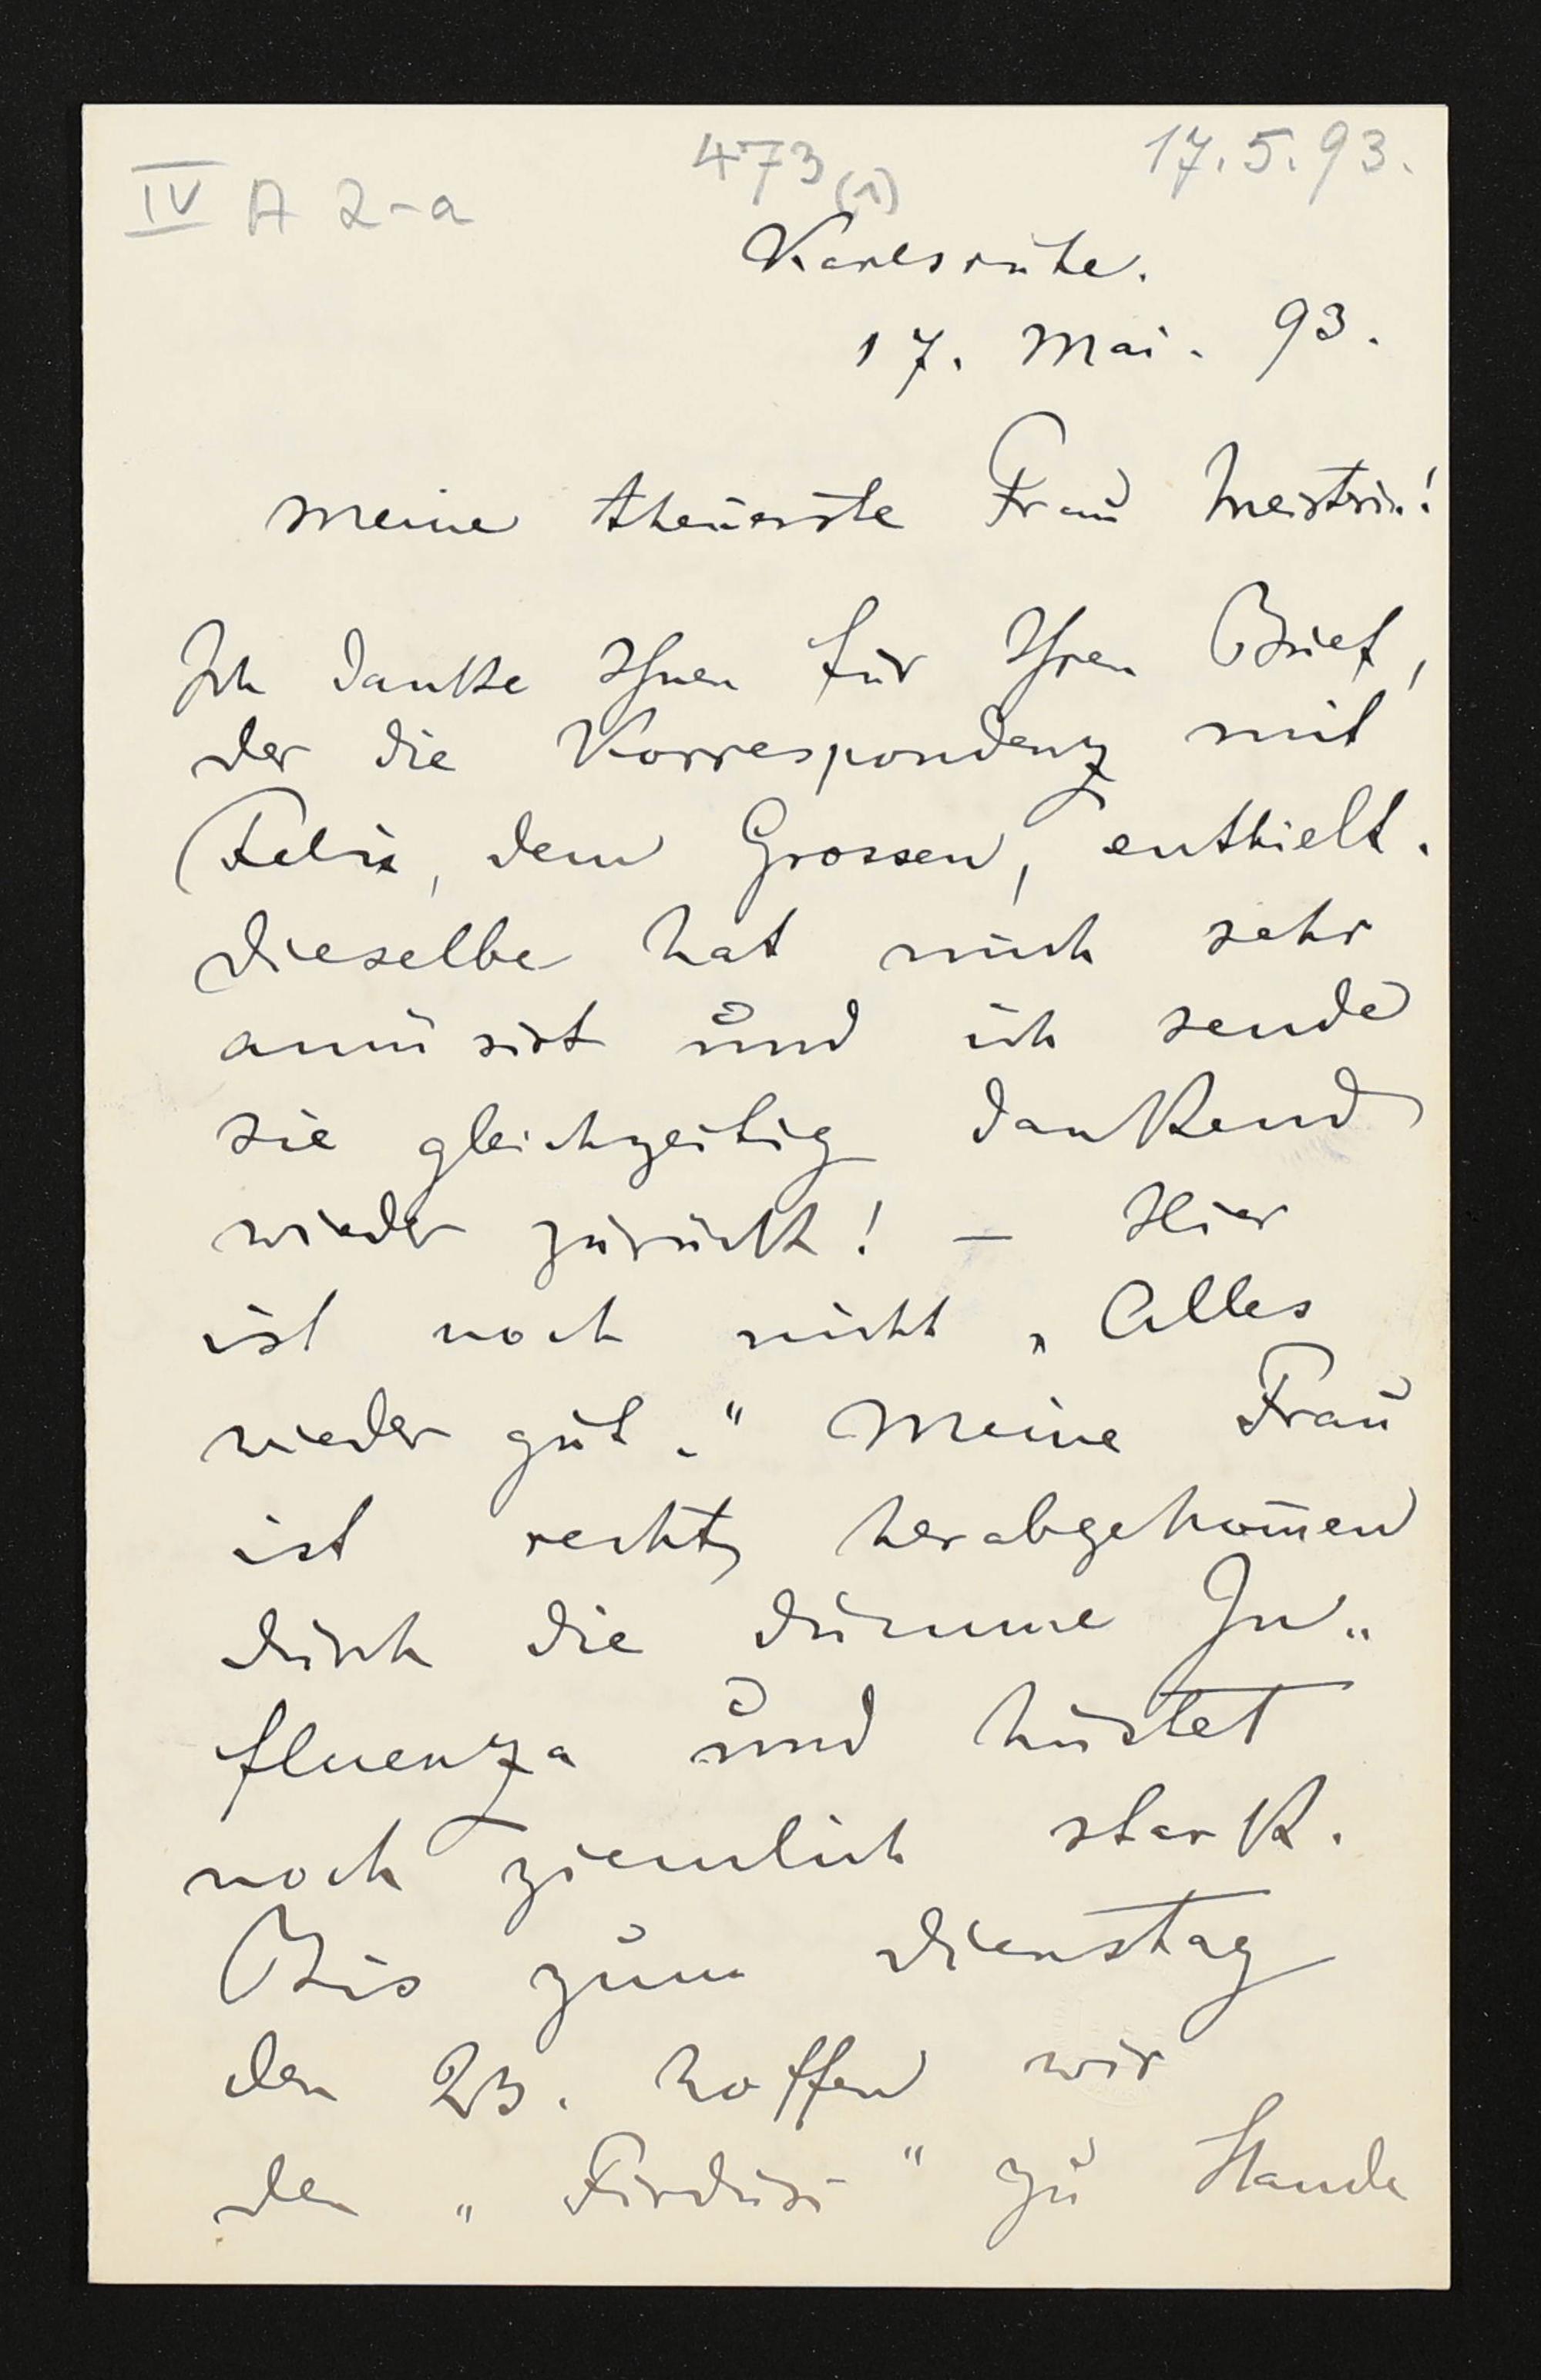 IV A 2-a
473 (1)
17.5.93.
Karlsruhe.
17. Mai. 93.
Meine theuerste Frau Meisterin!
Ich danke Ihnen für Ihren Brief,
der die Korrespondenz mit
Felix, dem Grossen, enthielt.
Dieselbe hat mich sehr
amüsirt und ich sende
sie gleichzeitig dankend
wieder zurück! — Hier
ist noch nicht „Alles
wieder gut.“ Meine Frau
ist recht herabgekom̅en
durch die dumme In„
fluenza und hustet
noch ziemlich stark.
Bis zum Dienstag
den 23. hoffen wir
den „Firdusi“ zu Stande